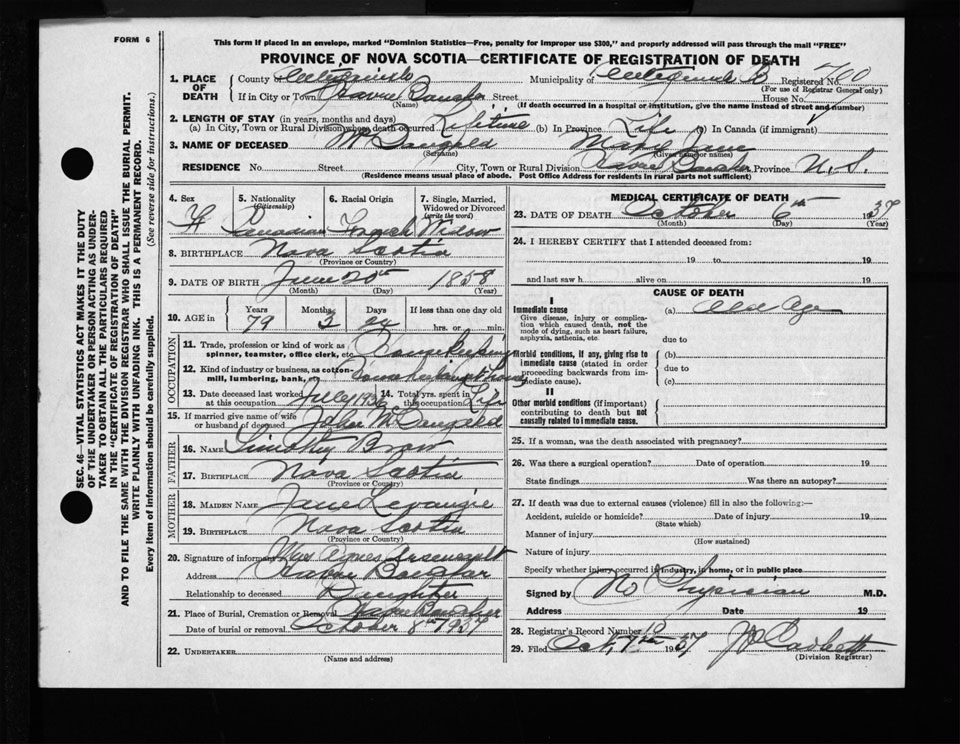 FORM 6
This form if placed in an envelope, marked "Dominion Statistics—Free, penalty for improper use $300," and properly addressed will pass through the mail "FREE"
PROVINCE OF NOVA SCOTIA—CERTIFICATE OF REGISTRATION OF DEATH
1. PLACE OF DEATH
County of Antigonish Municipality of Antigonish Registered No.
(For use of Registrar General only)
If in City or Town Havre Boucher Street House No.
(Name) (If death occurred in a hospital or institution, give the name instead of street and number)
2. LENGTH OF STAY (in years, months and days)
(a) In City, Town or Rural Division where death occurred Lifetime (b) In Province Life (c) In Canada (if immigrant)
3. NAME OF DECEASED Mary Jane
(Surname) (Given name or names)
RESIDENCE No. Street City, Town or Rural Division Havre Boucher Province N.S.
(Residence means usual place of abode. Post Office Address for residents in rural parts not sufficient)
4. Sex F
5. Nationality (Citizenship) Canadian
6. Racial Origin French
7. Single, Married, Widowed or Divorced (write the word) Widow
8. BIRTHPLACE Nova Scotia
(Province or Country)
9. DATE OF BIRTH June 20th 1858
(Month) (Day) (Year)
10. AGE in Years 79 Months 3 Days 24 If less than one day old hrs. or min.
OCCUPATION
11. Trade, profession or kind of work as spinner, teamster, office clerk, etc. Housekeeping
12. Kind of industry or business, as cotton-mill, lumbering, bank,
13. Date deceased last worked at this occupation July 1936
14. Total yrs. spent in this occupation Life
15. If married give name of wife or husband of deceased John
FATHER
16. NAME Timothy
17. BIRTHPLACE Nova Scotia
(Province or Country)
MOTHER
18. MAIDEN NAME Jane Levangie
19. BIRTHPLACE Nova Scotia
(Province or Country)
20. Signature of informant Mrs Agnes Arseneault
Address Havre Boucher
Relationship to deceased Daughter
21. Place of Burial, Cremation or Removal Havre Boucher
Date of burial or removal October 8th 1937
22. UNDERTAKER
(Name and address)
MEDICAL CERTIFICATE OF DEATH
23. DATE OF DEATH October 6th 1937
(Month) (Day) (Year)
24. I HEREBY CERTIFY that I attended deceased from:
19 to 19
and last saw h alive on 19
CAUSE OF DEATH
I
Immediate cause
Give disease, injury or complication which caused death, not the mode of dying, such as heart failure, asphyxia, asthenia, etc.
(a) Old Age
due to
Morbid conditions, if any, giving rise to immediate cause (stated in order proceeding backwards from immediate cause).
(b)
due to
(c)
II
Other morbid conditions (if important) contributing to death but not causally related to immediate cause.
25. If a woman, was the death associated with pregnancy?
26. Was there a surgical operation? Date of operation 19
State findings Was there an autopsy?
27. If death was due to external causes (violence) fill in also the following:—
Accident, suicide or homicide? Date of injury 19
(State which)
Manner of injury
(How sustained)
Nature of injury
Specify whether injury occurred in industry, in home, or in public place
Signed by No Physician M.D.
Address Date 19
28. Registrar's Record Number
29. Filed Oct, 7th 1937
(Division Registrar)
SEC. 46—VITAL STATISTICS ACT MAKES IT THE DUTY
OF THE UNDERTAKER OR PERSON ACTING AS UNDER-
TAKER TO OBTAIN ALL THE PARTICULARS REQUIRED
IN THE "CERTIFICATE OF REGISTRATION OF DEATH"
AND TO FILE THE SAME WITH THE DIVISION REGISTRAR WHO SHALL ISSUE THE BURIAL PERMIT.
WRITE PLAINLY WITH UNFADING INK. THIS IS A PERMANENT RECORD.
Every item of information should be carefully supplied. (See reverse side for instructions.)